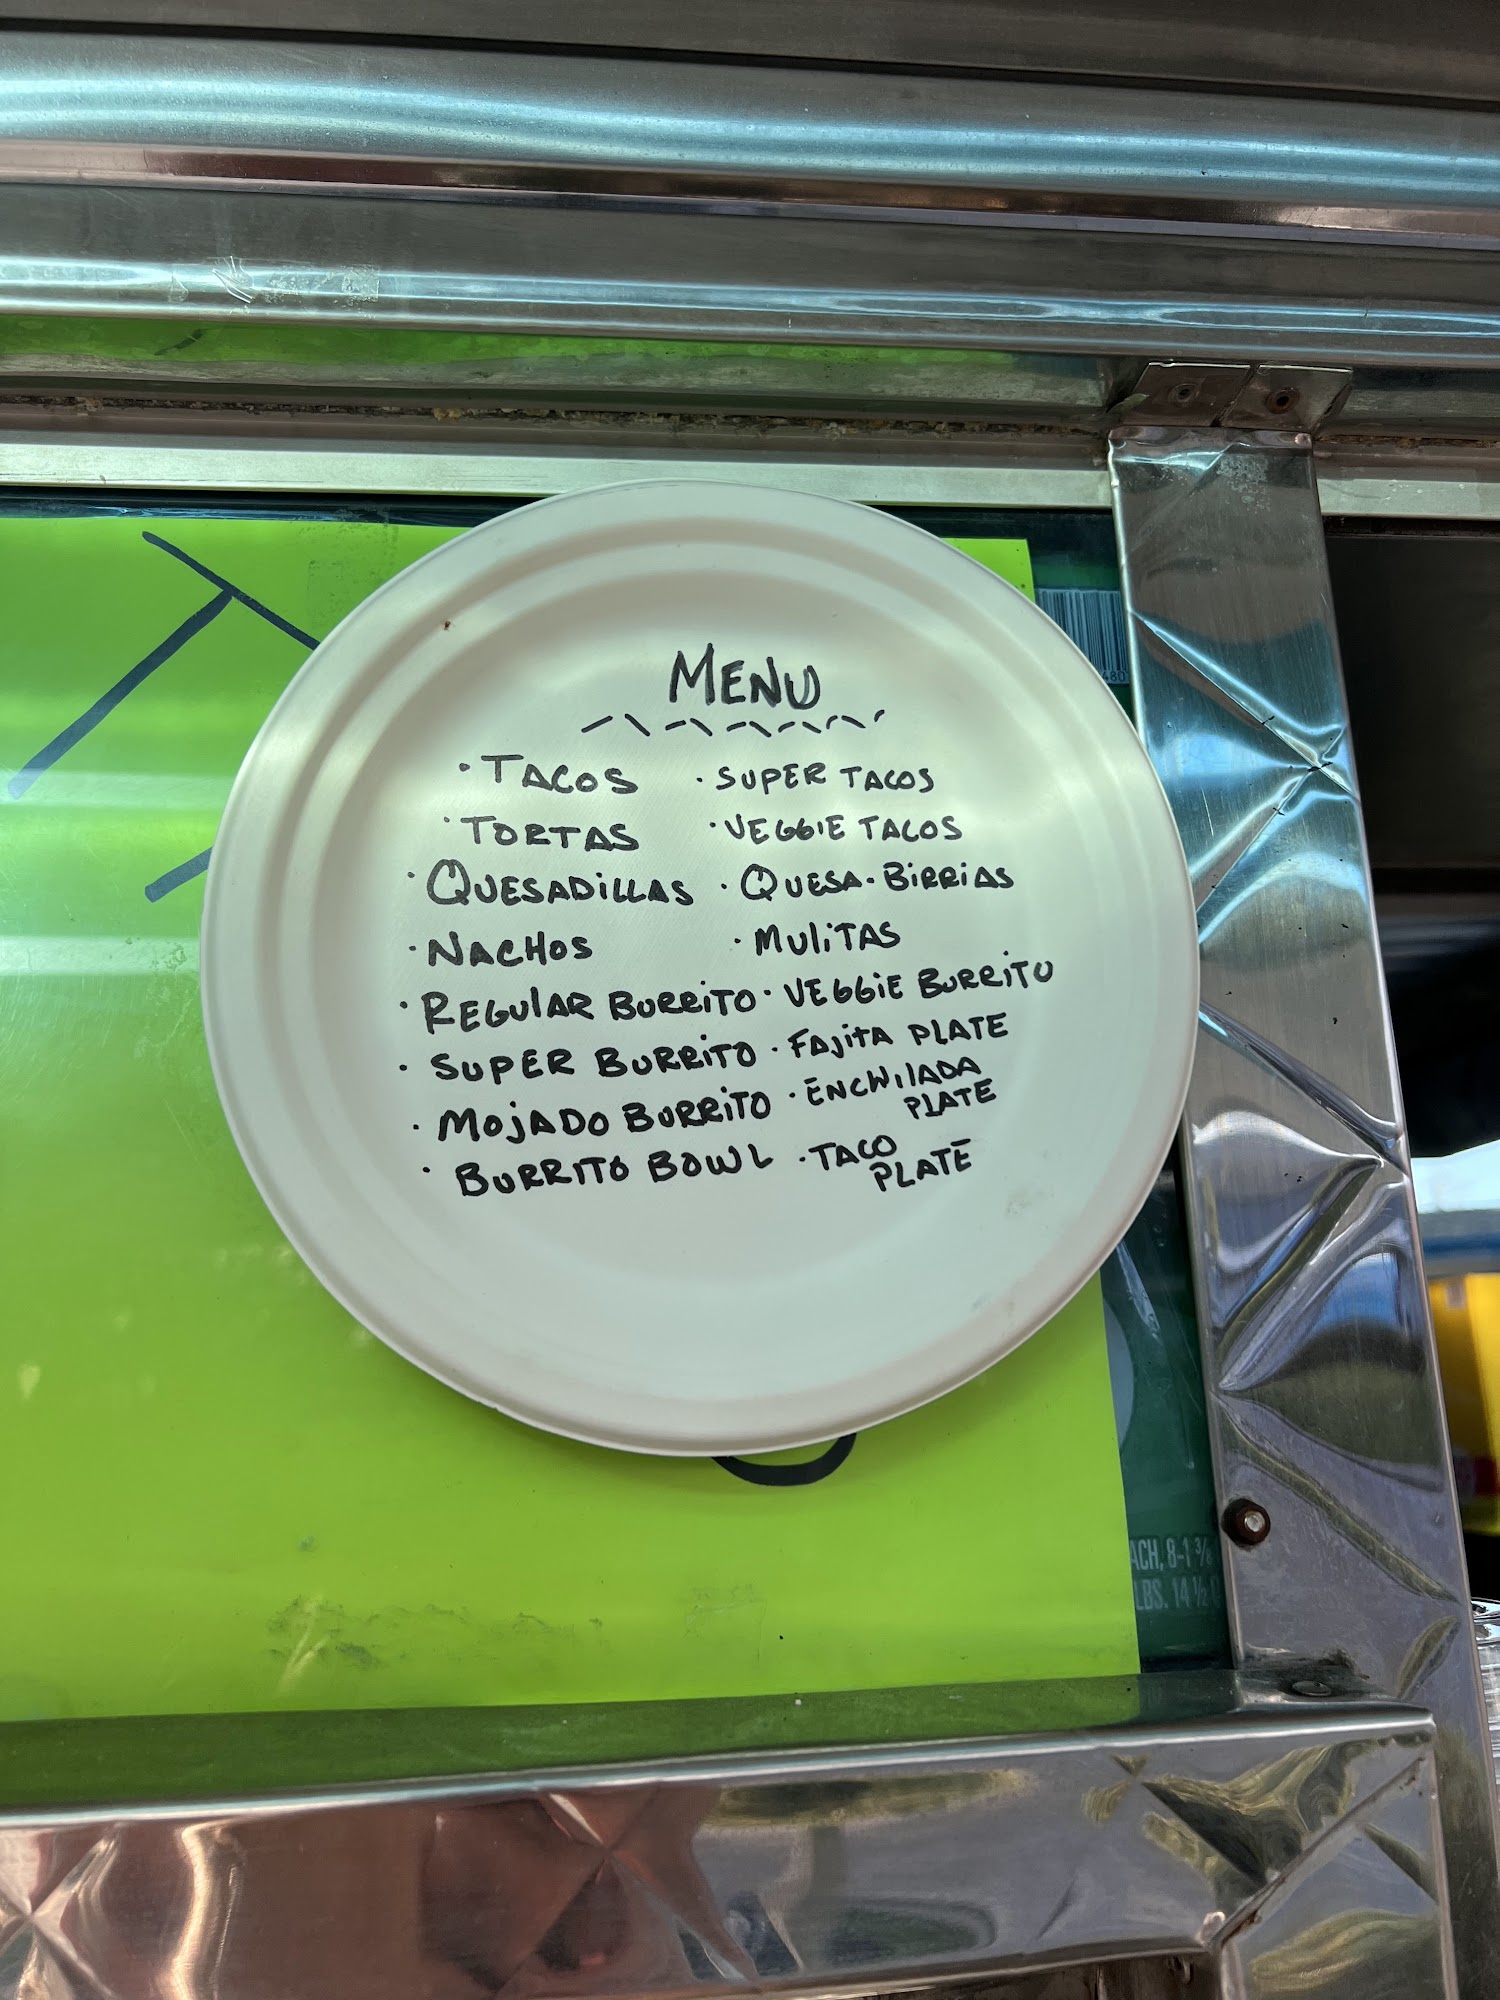 MENU
· TACOS
· TORTAS
· QUESADILLAS
· NACHOS
· REGULAR BURRITO
· SUPER BURRITO
· MOJADO BURRITO
· BURRITO BOWL
· SUPER TACOS
· VEGGIE TACOS
· QUESA-BIRRIAS
· MULITAS
· VEGGIE BURRITO
· FAJITA PLATE
· ENCHILADA
PLATE
· TACO
PLATE
ACH, 8-1 3/8
LBS. 14 1/2